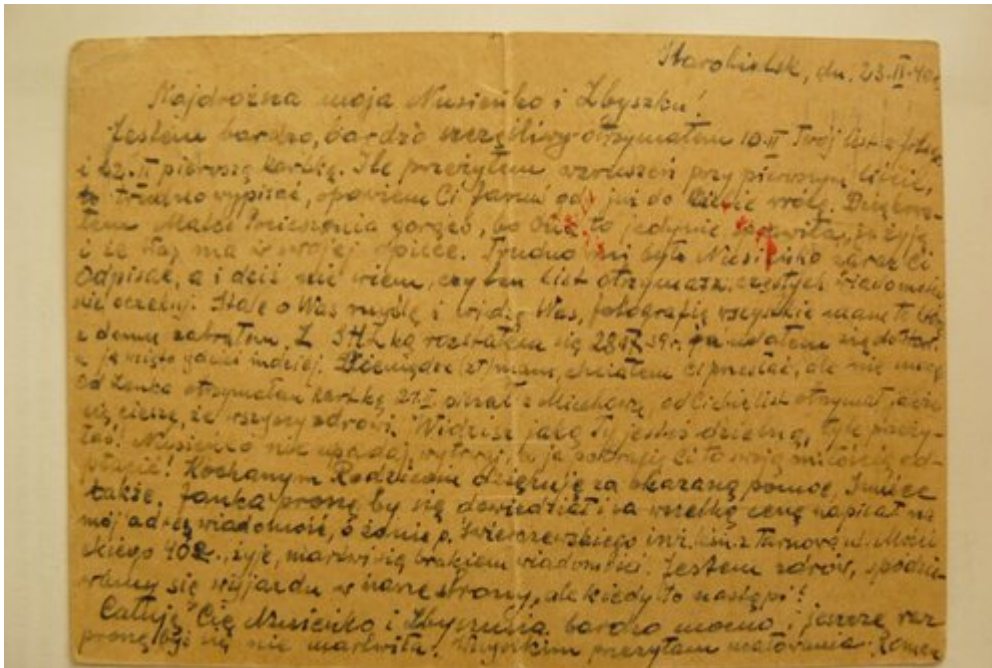 Starobielsk, dn. 23.II.40r.
Najdroższa moja Nusieńko i Zbyszku!
Jestem bardzo, bardzo szczęśliwy otrzymałem 10.II Twój list z
i 22.II pierwszą kartkę. Ile przeżyłem wzruszeń przy pierwszym liście,
trudno wypisać, opowiem Ci już do Ciebie wrócę.
Matce Boskiej, to jedynie, że żyję
i że Was ma w swojej opiece. Trudno mi było Nusieńko zaraz Ci
odpisać, a i dziś nie wiem, czy ten list otrzymasz, częstych wiadomości
nie oczekuj. Stale o Was myślę i widzę Was, fotografię wszystkie mam te
z domu zabrałem. Z rozstałem się 28 IX 39r. ja udałem się do
a ją gdzieś indziej. Pieniądze (zł) mam, chciałem Ci przesłać, ale nie mogę
Od Zenka otrzymałem kartkę 21.II pisał z Miechowa, od Ciebie list otrzymał
się cieszę, że wszyscy zdrowi. Widzisz jaką Ty jesteś dzielną, tyle przeży-
łaś! Nusieńko nie upadaj, wytrwaj, bo ja potrafię Ci to swoją miłością od-
płacić! Kochanym Rodzicom dziękuję za okazaną pomoc,
także. Janka proszę by się dowiedział i za wszelką cenę napisał na
mój adres wiadomość, o żonie p. inż. z Tarnowa ul. Mości-
ckiego 402., żyje, martwi się brakiem wiadomości. Jestem zdrów, spodzie-
wamy się wyjazdu w nasze strony, ale kiedy to nastąpi?
Całuję Cię Nusieńko i Zbyszunia bardzo mocno i jeszcze raz
proszę byś się nie martwiła. Wszystkim przesyłam ucałowania. Roman